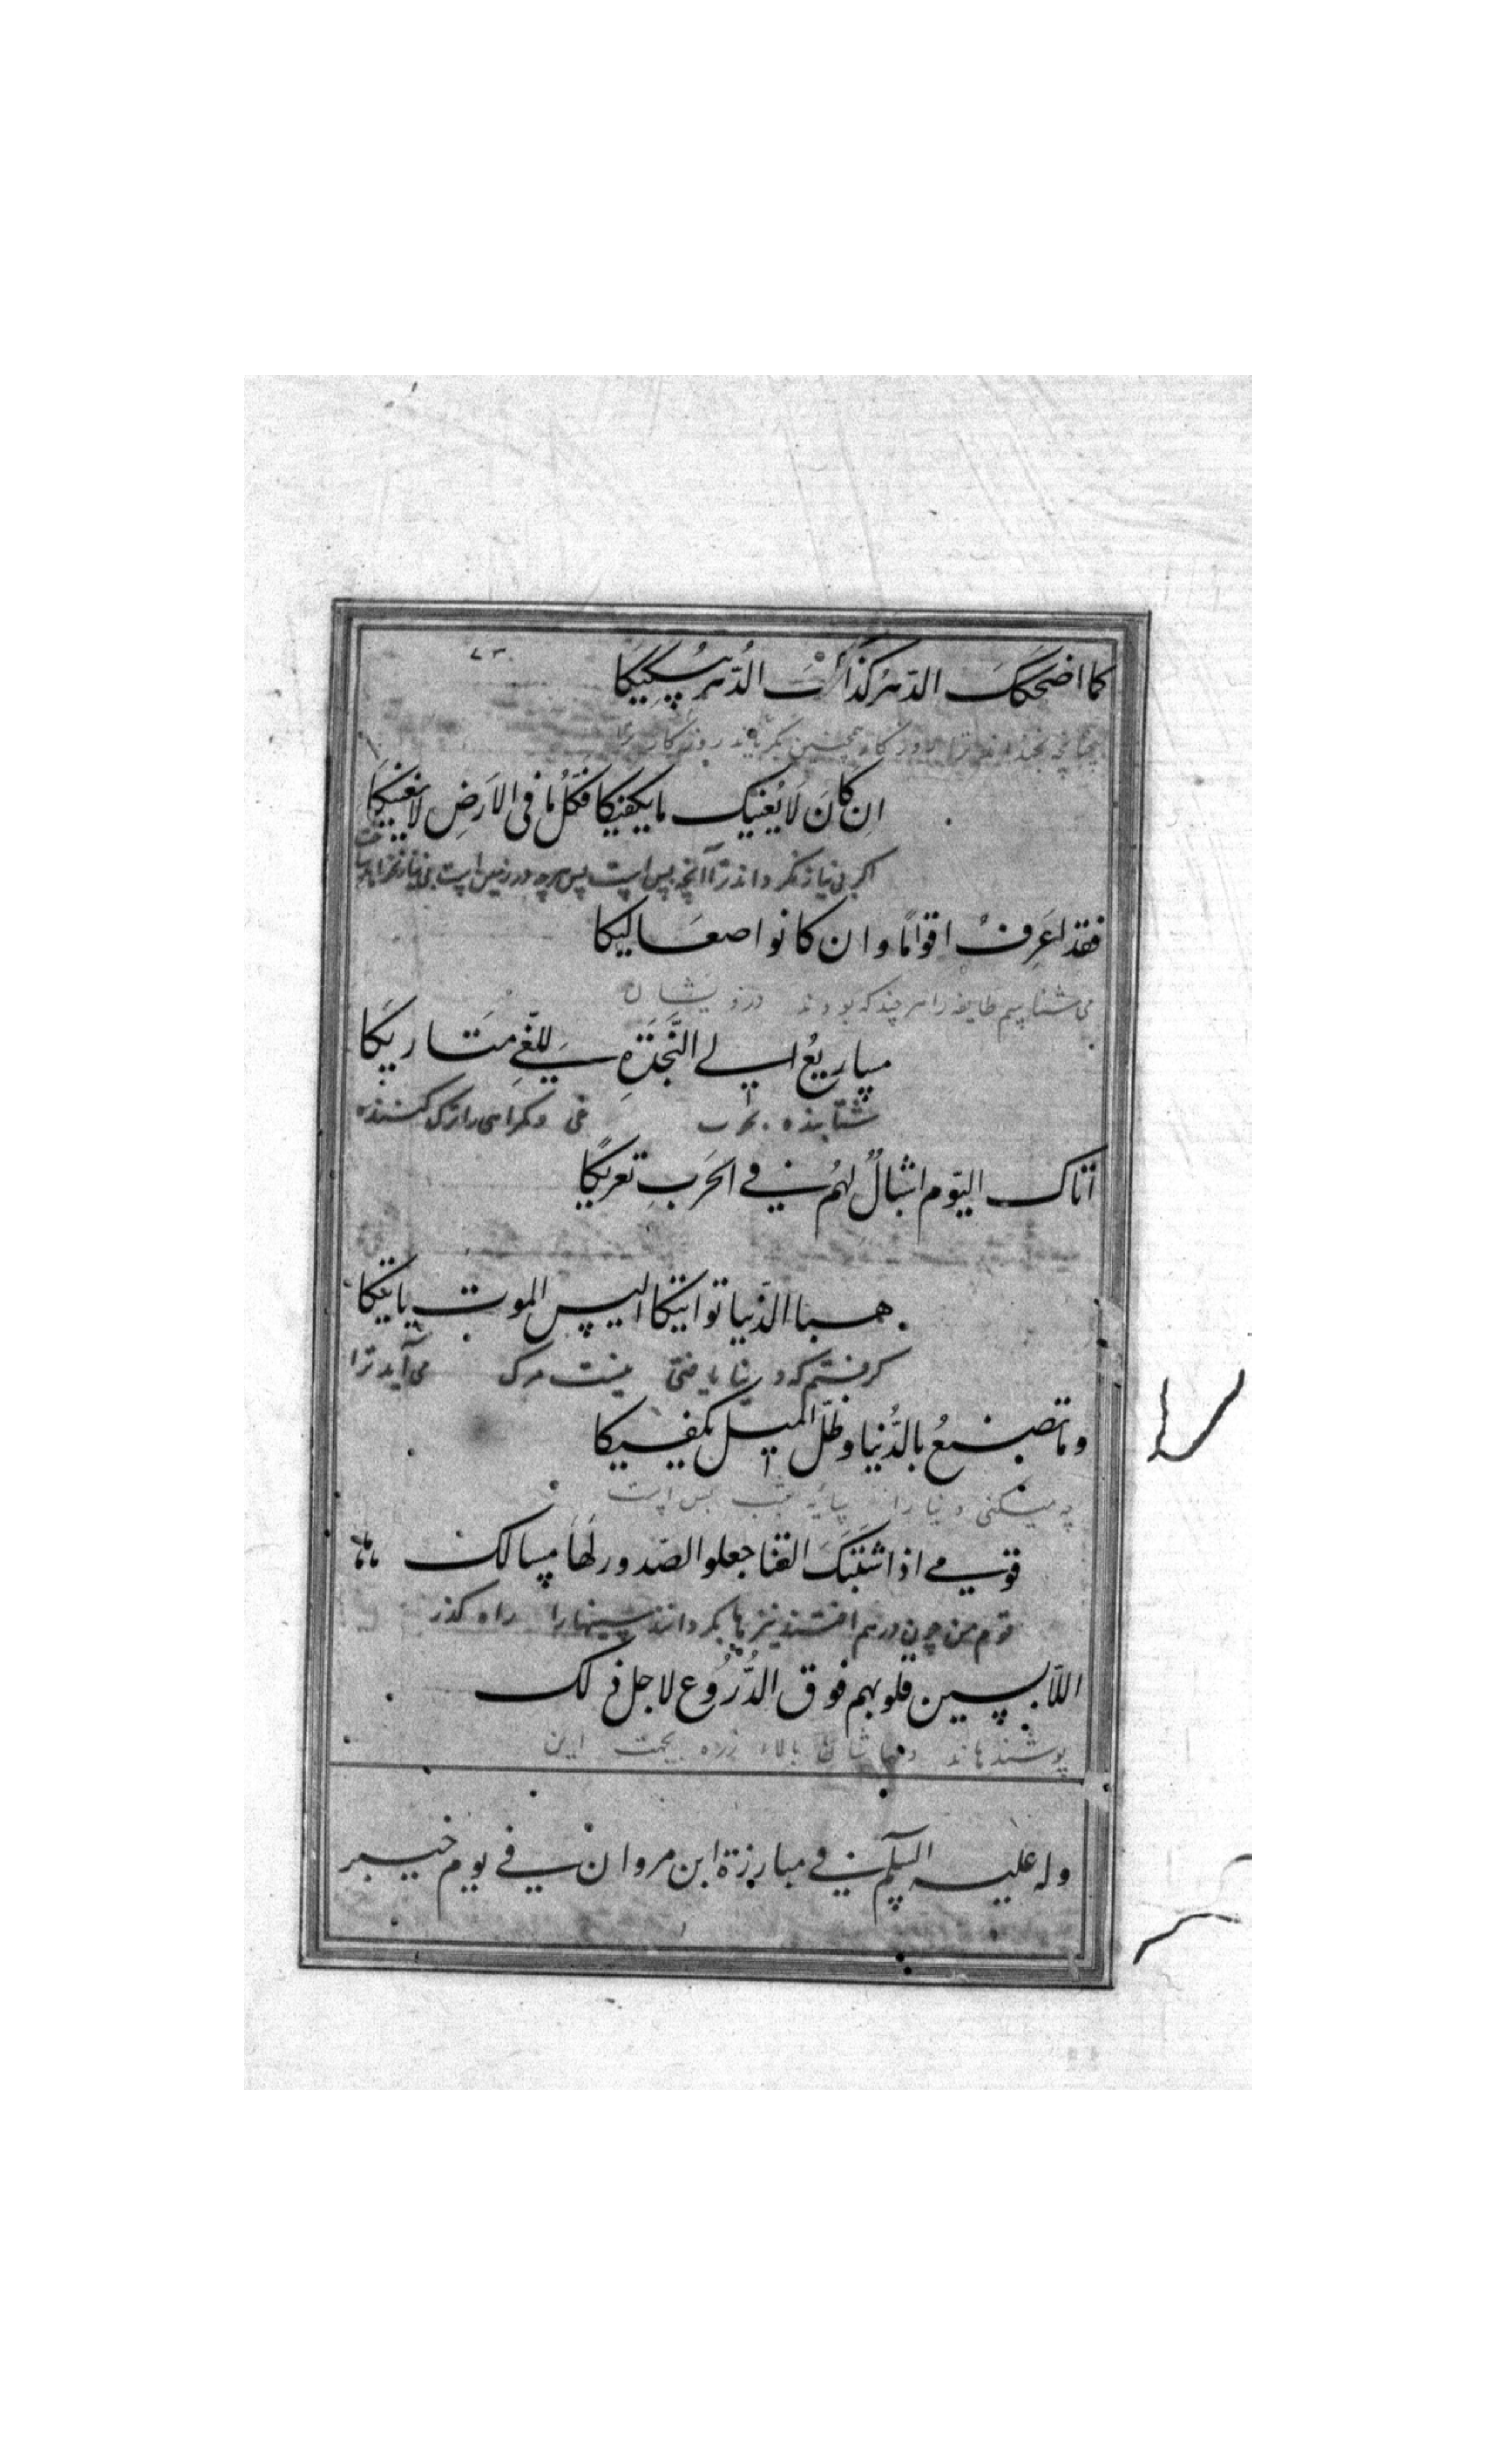 كما اضحكك الدّهرُ كذاك الدُّهر يُبكيكا
چنانچه بخنداند ترا روزگار همچنین بگریاند روزگار ترا
ان كانَ لَا يُغنيك ما يكفيكا فكلُ ما فى الاَرضِ لا يغنيكا
اکر بی نیاز نگرداند ترا آنچه بس است پس هرچه در زمین است بی نیاز نگرداند
فقد اَعرِفُ اقوامًا و ان كانوا صعاليكا
می شناسم طایفه را هر چند که بودند درویشان
مساريعُ الى النَّجَدَةِ للغّىِ متاريكا
شتابنده بحرب و کمراهی را ترک کننده
اتاك اليوم امثالٌ لهُم فى الحَربِ تعريكًا
هب الدّنيا تواتيكا اليس الموت ياتيكا
گرفتم که دنیا یافتی نیست مرک می آید ترا
و ما تصنعُ بالدُّنيا و ظلّ الميل يكفيكا
چه میکنی دنیا را سایه بس است
قومى اذا اشتَبَكَ القنا جعلوا الصّدور لهَا مسالك
قوم من چون در هم افتند نیزها بگردانند سینها را راه گذر
اللّابسين قلوبهم فوق الدُّرُوع لاجل ذلك
پوشندهاند دلهاشان بالاء زره بجهت این
وله عليه السلم فى مبارزة ابن مروان فى يوم خيبر